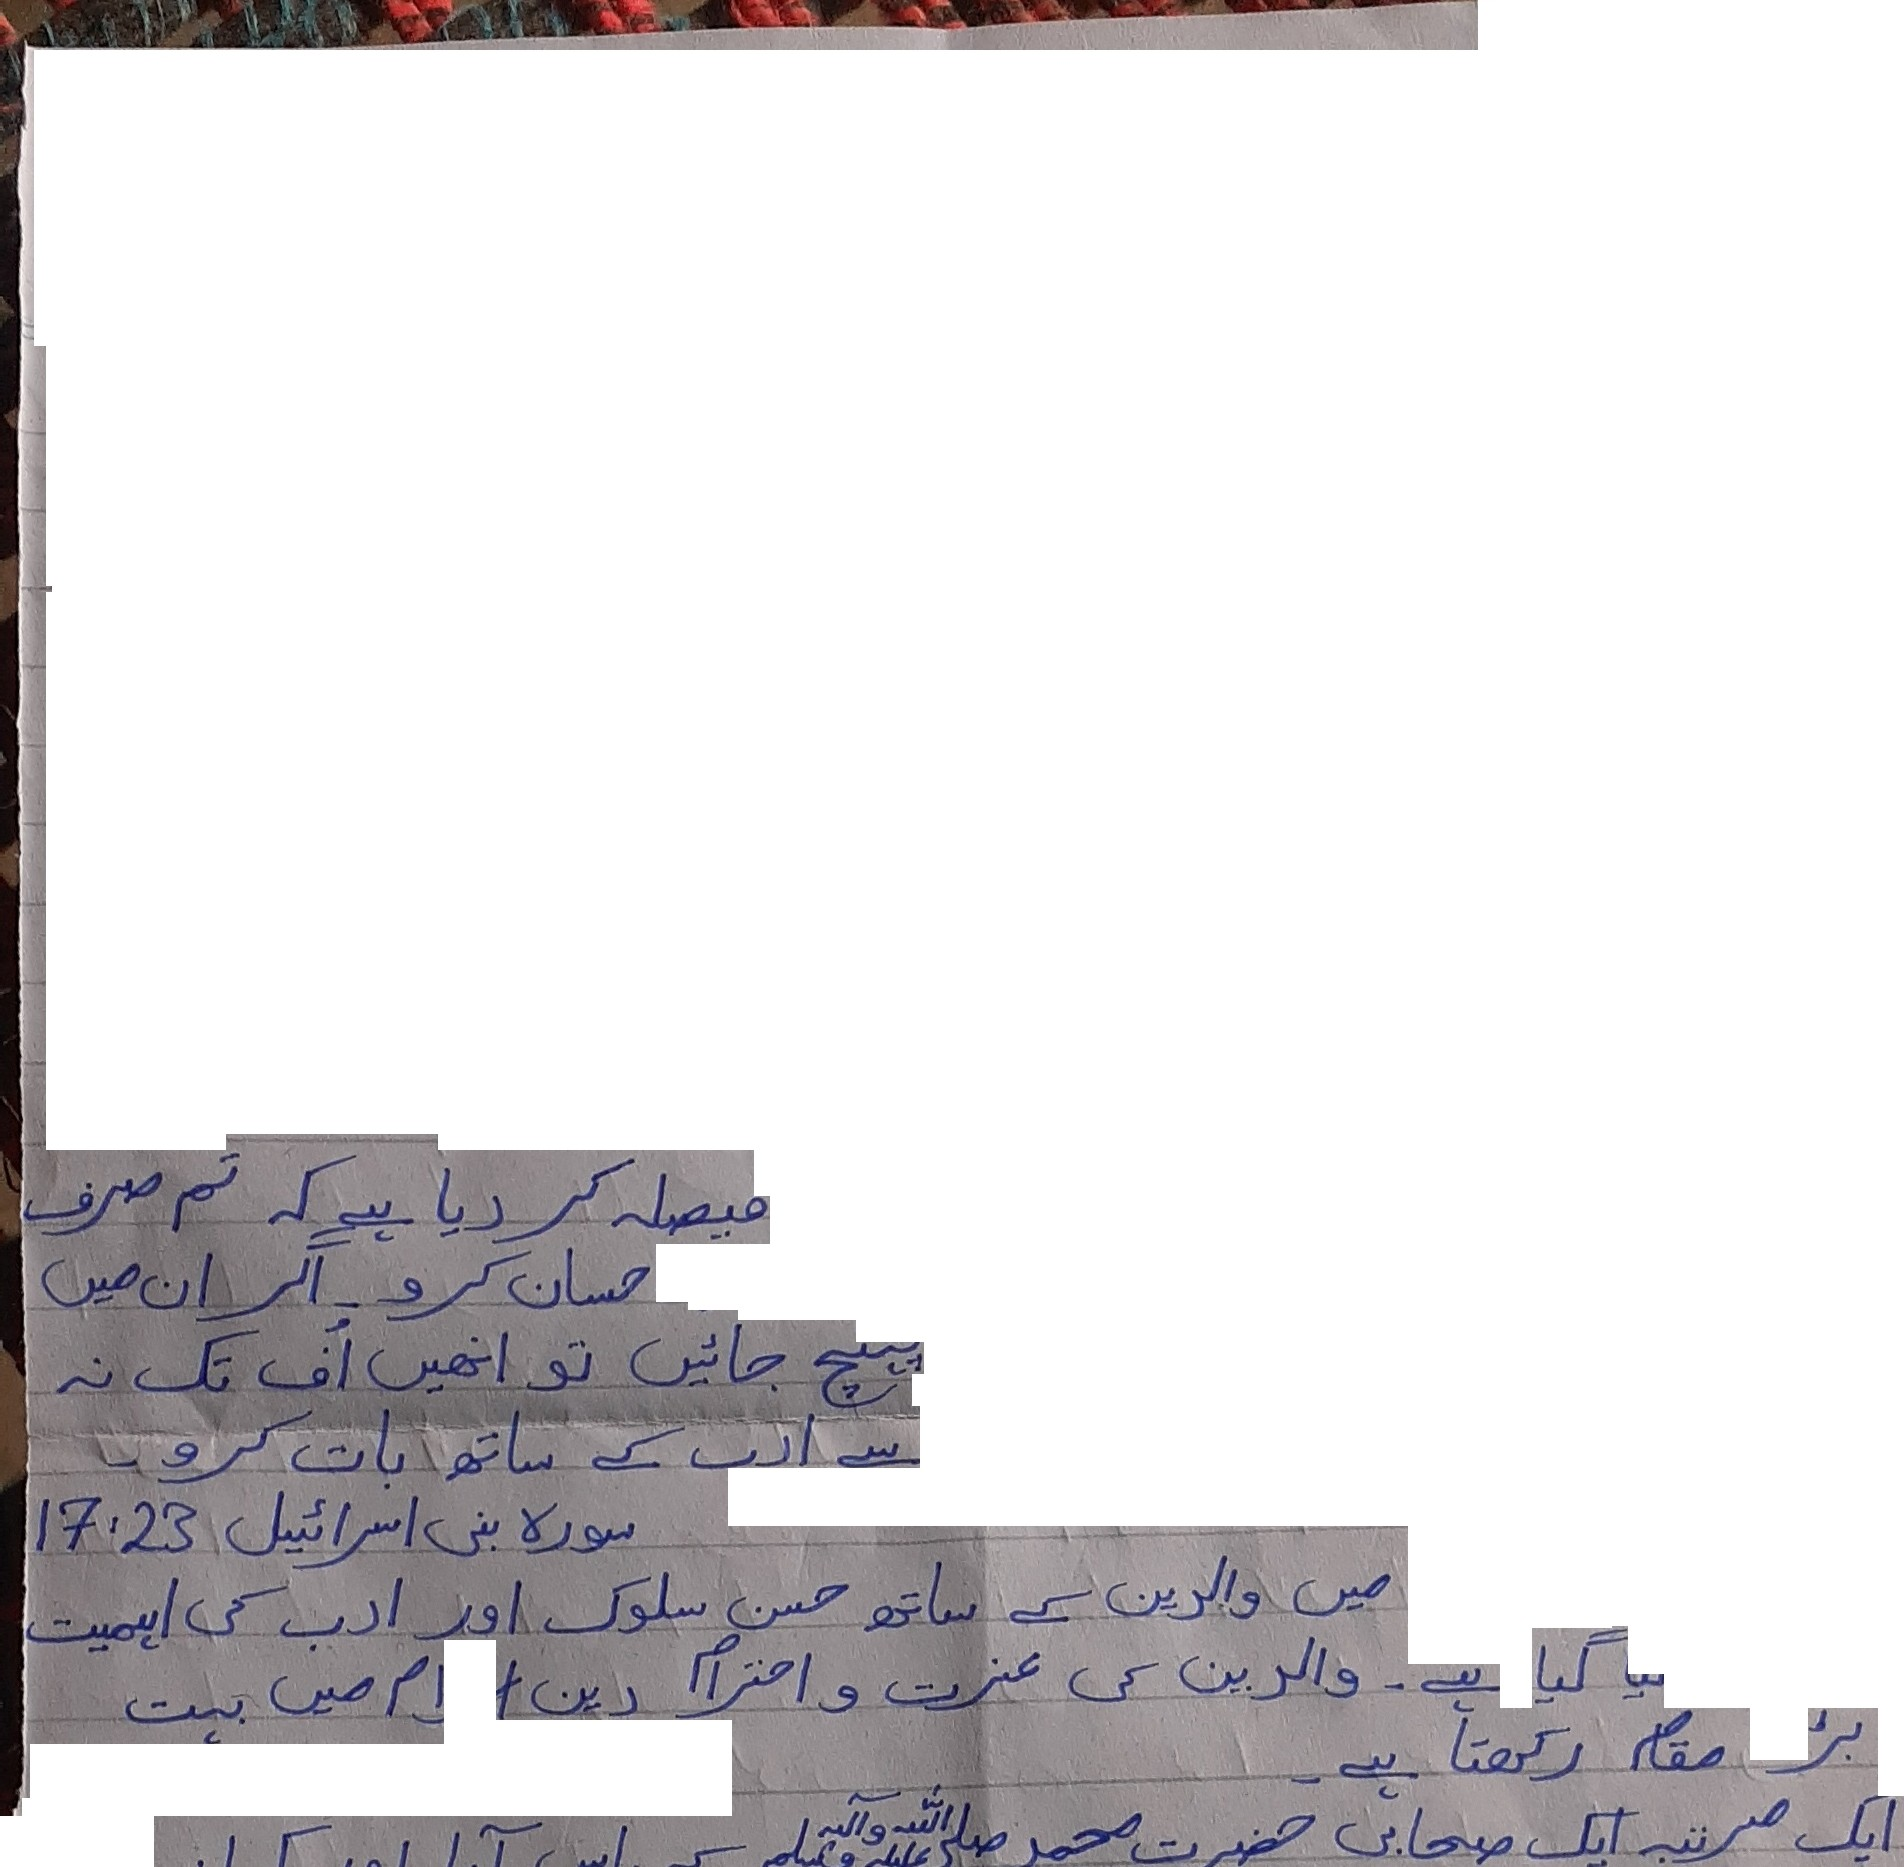 فیصلہ کر دیا ہے کہ تم صرف
حسان کرو۔ اگر ان میں
پہنچ جائیں تو انھیں اُف تک نہ
سے ادب کے ساتھ بات کرو۔
سورہ بنی اسرائیل 17:23
میں والدین کے ساتھ حسن سلوک اور ادب کی اہمیت
گیا ہے۔ والدین کی عزت و احترام دین میں بہت
بڑ مقام رکھتا ہے۔
ایک مرتبہ ایک صحابی حضرت محمد صلی اللہ علیہ وآلہ وسلم کے پاس آیا اور